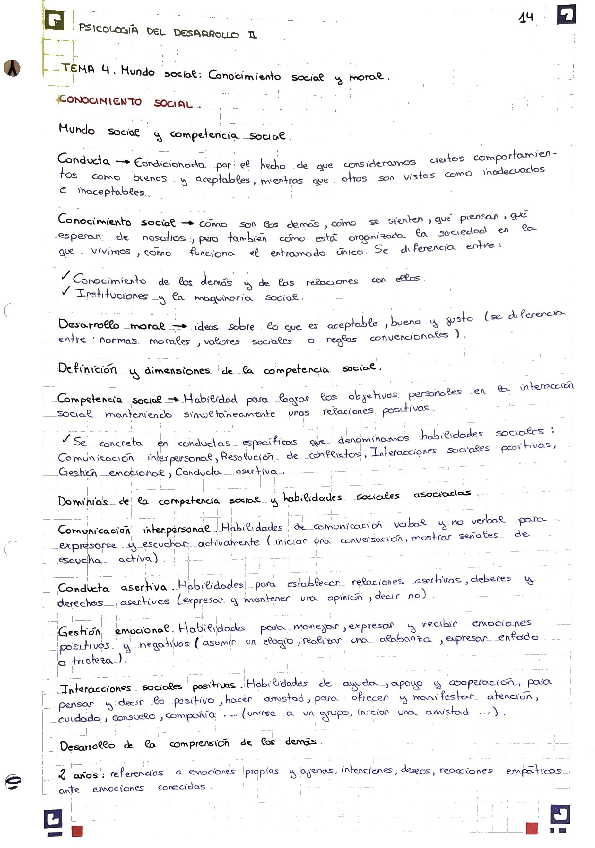 PSICOLOGÍA DEL DESARROLLO II
14
TEMA 4. Mundo social: Conocimiento social y moral.
CONOCIMIENTO SOCIAL.
Mundo social y competencia social.
Conducta → Condicionada por el hecho de que consideramos ciertos comportamien-
tos como buenos y aceptables, mientras que otros son vistos como inadecuados
e inaceptables.
Conocimiento social → cómo son los demás, cómo se sienten, qué piensan, qué
esperan de nosotros, pero también cómo está organizada la sociedad en la
que vivimos, cómo funciona el entramado único. Se diferencia entre:
✓ Conocimiento de los demás y de las relaciones con ellos.
✓ Instituciones y la maquinaria social.
Desarrollo moral → ideas sobre lo que es aceptable, bueno y justo (se diferencia
entre normas morales, valores sociales o reglas convencionales).
Definición y dimensiones de la competencia social.
Competencia social → Habilidad para lograr los objetivos personales en la interacción
social manteniendo simultáneamente unas relaciones positivas.
✓ Se concreta en conductas específicas que denominamos habilidades sociales:
Comunicación interpersonal, Resolución de conflictos, Interacciones sociales positivas,
Gestión emocional, Conducta asertiva.
Dominios de la competencia social y habilidades sociales asociadas.
Comunicación interpersonal. Habilidades de comunicación verbal y no verbal para
expresarse y escuchar activamente (iniciar una conversación, mostrar señales de
escucha activa).
Conducta asertiva. Habilidades para establecer relaciones asertivas, deberes y
derechos asertivos (expresar y mantener una opinión, decir no).
Gestión emocional. Habilidades para manejar, expresar y recibir emociones
positivas y negativas (asumir un elogio, realizar una alabanza, expresar enfado
o tristeza).
Interacciones sociales positivas. Habilidades de ayuda, apoyo y cooperación, para
pensar y decir lo positivo, hacer amistad, para ofrecer y manifestar atención,
cuidado, consuelo, compañía ... (unirse a un grupo, iniciar una amistad ...).
Desarrollo de la comprensión de los demás.
2 años: referencias a emociones propias y ajenas, intenciones, deseos, reacciones empáticas
ante emociones conocidas.